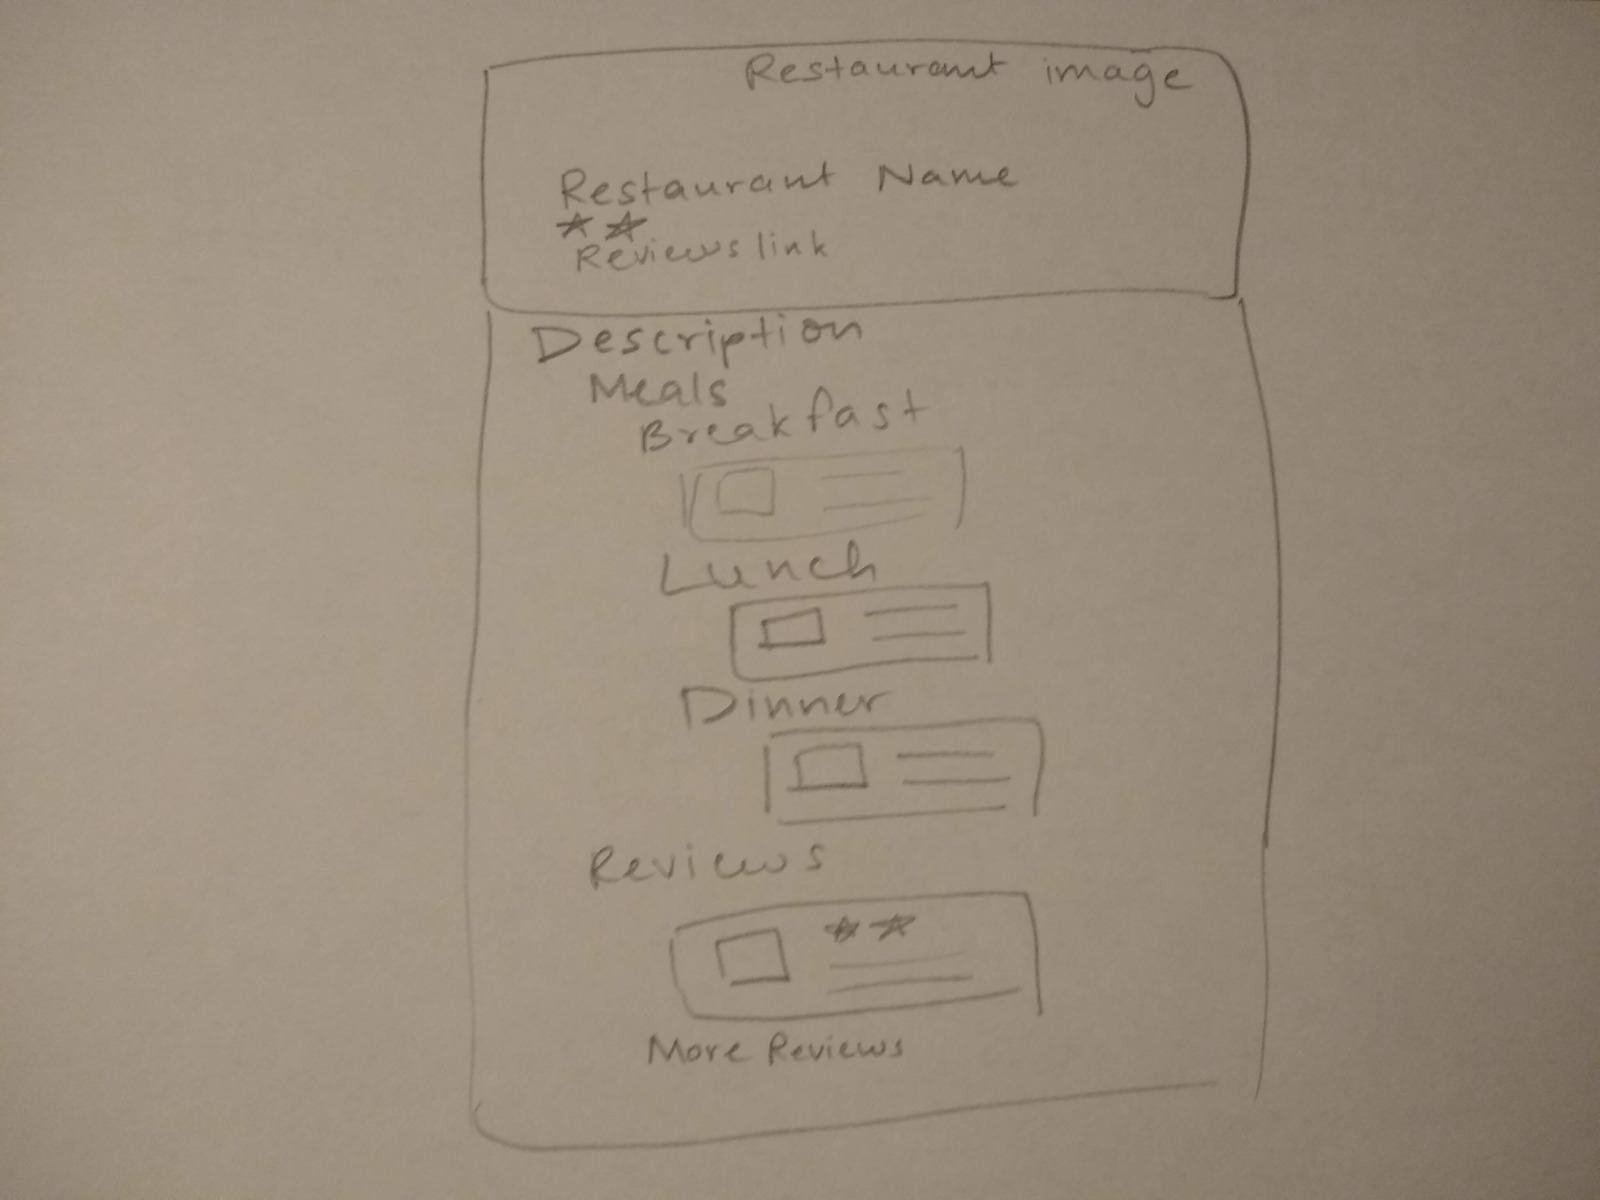 Restaurant image
Restaurant Name
Reviews link
Description
Meals
Breakfast
Lunch
Dinner
Reviews
More Reviews